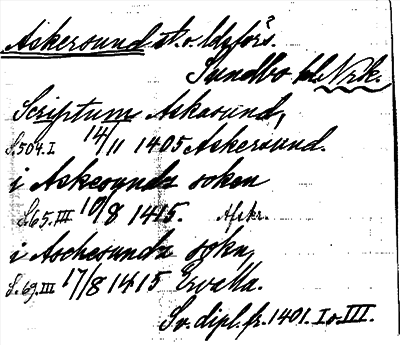 Askersund st. o. ldsförs.
Sundbo hd Nrk.
Scriptum Askasund,
S. 504. I 14/11 1405 Askersund.
i Askesyndz soken
S. 65. III 10/8 1415. Afskr.
i Aschesundz sokn,
S. 69. III 17/8 1415 Ervalla.
Sv. dipl. fr. 1401. I o. III.